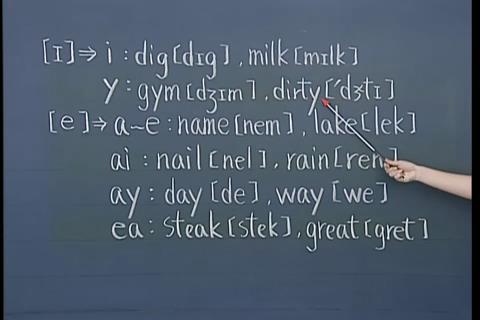 [ɪ]⇒ i : dig[dɪg], milk[mɪlk]
y : gym[dʒɪm], dirty[ˊdɝtɪ]
[e]⇒ a~e : name[nem], lake[lek]
ai : nail[nel], rain[ren]
ay : day[de], way[we]
ea : steak[stek], great[gret]